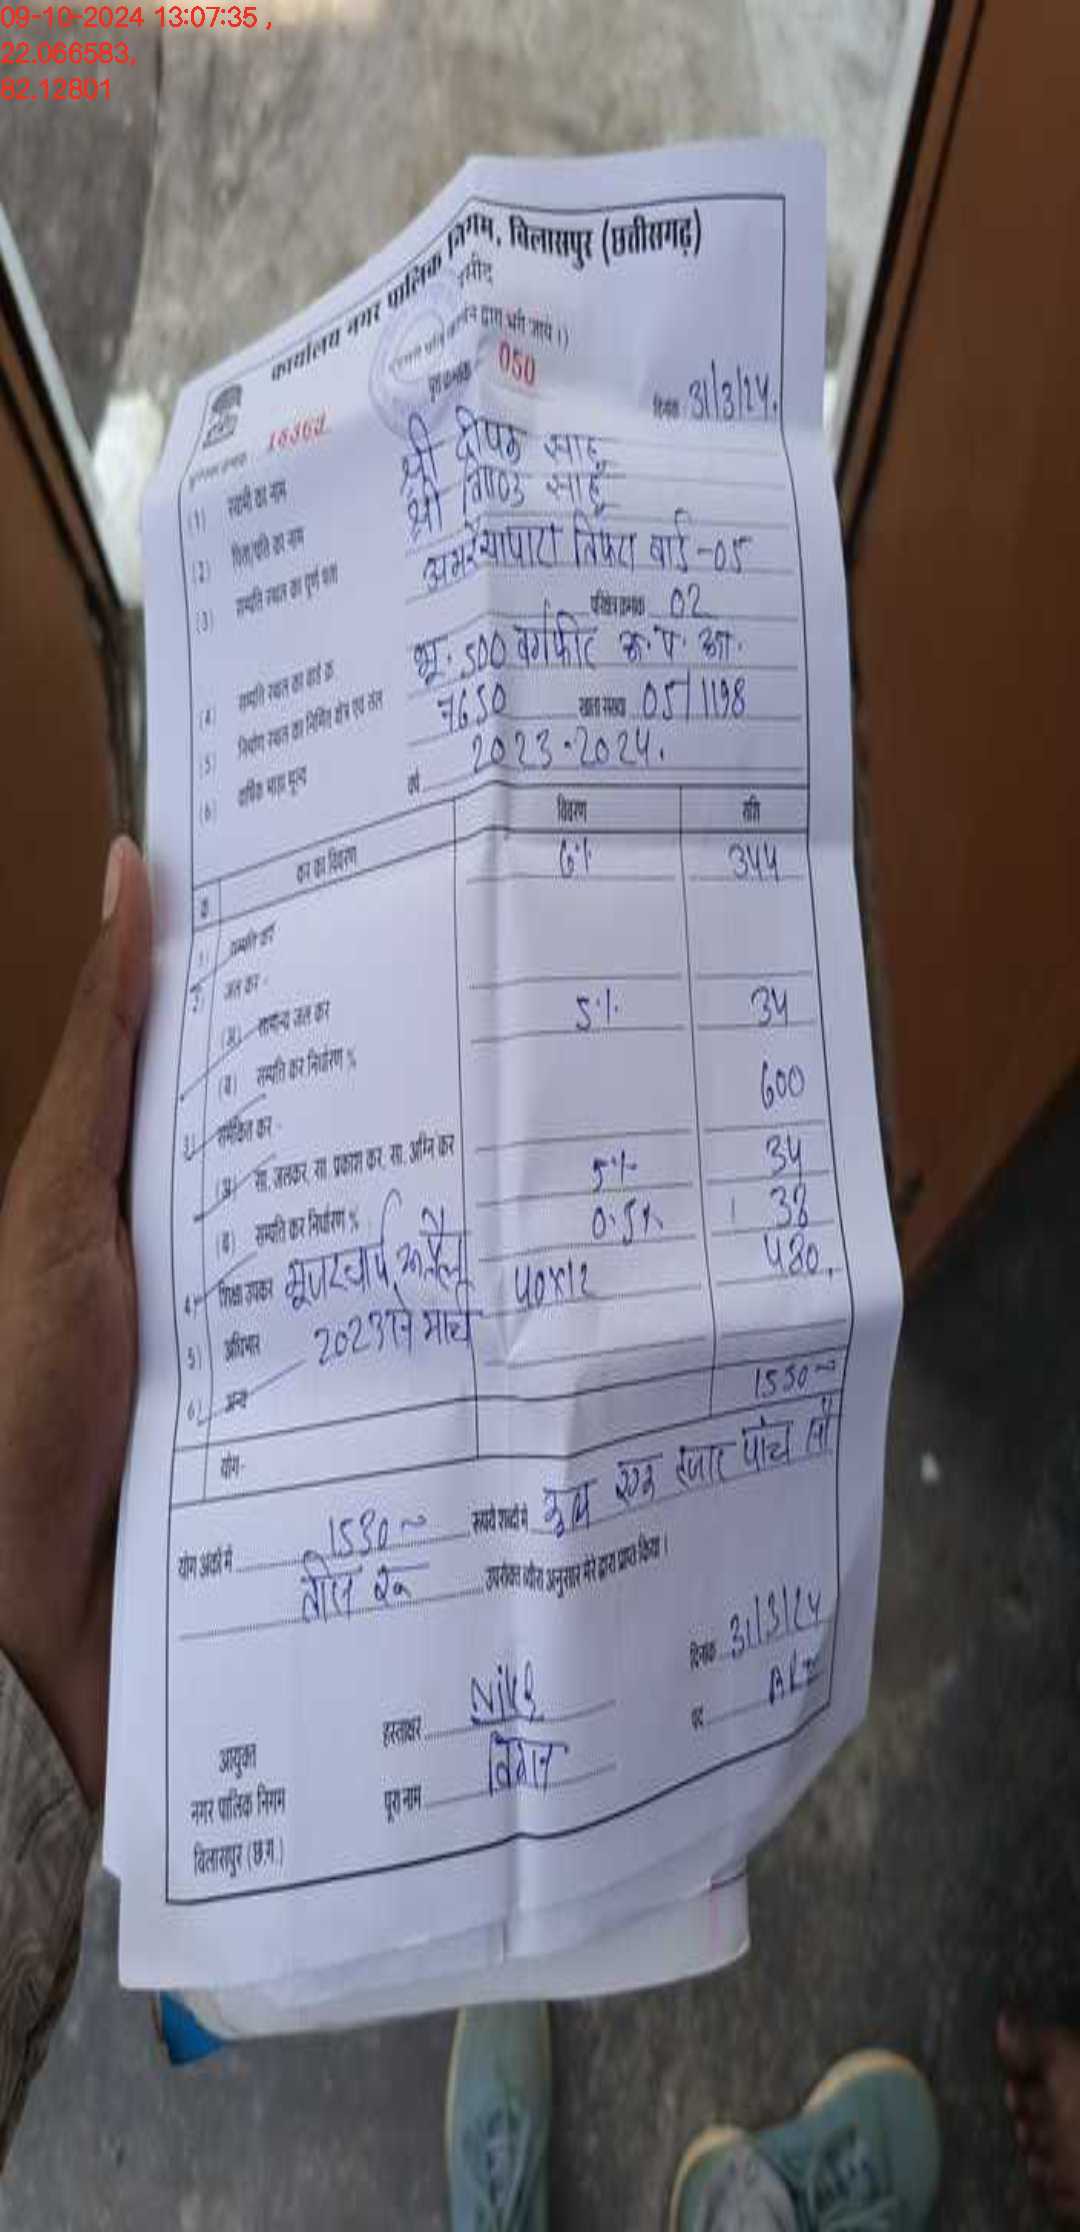 09-10-2024 13:07:35 ,
22.066583,
82.12801
कार्यालय नगर पालिक निगम, विलासपुर (छत्तीसगढ़)
रसीद
द्वारा भरी जाये।)
050
दिनांक 31/3/24.
(1) स्वामी का नाम श्री दीपक साहू
(2) पिता/पति का नाम श्री साहू
(3) सम्पत्ति स्थल का पूर्ण पता तिफरा वार्ड-05
(4) सम्पत्ति स्थल का वार्ड क्र. परिक्षेत्र क्रमांक 02
(5) निर्माण स्थल का निर्मित क्षेत्र एवं तल भू. 500 वर्गफीट
(6) वार्षिक भाड़ा मूल्य 7650 खाता संख्या 05/1198
वर्ष 2023-2024.
क्र कर का विवरण विवरण राशि
1) सम्पत्ति कर 6% 344
2) जल कर -
(अ) सामान्य जल कर
(ब) सम्पत्ति कर निर्धारण % 5% 34
3) समेकित कर - 600
(अ) सा. जलकर, सा. प्रकाश कर, सा. अग्नि कर
(ब) सम्पत्ति कर निर्धारण % 5% 34
4) शिक्षा उपकर 0.5% 38
5) अधिभार 40x12 480.
2023 से मार्च
6) अन्य
योग- 1530
योग अंकों में 1530 रूपये शब्दों में कुल एक हजार पांच सौ
तीस रू उपरोक्त ब्यौरा अनुसार मेरे द्वारा प्राप्त किया।
दिनांक 31/3/24
हस्ताक्षर
पद
आयुक्त
नगर पालिक निगम
पूरा नाम
विलासपुर (छ.ग.)